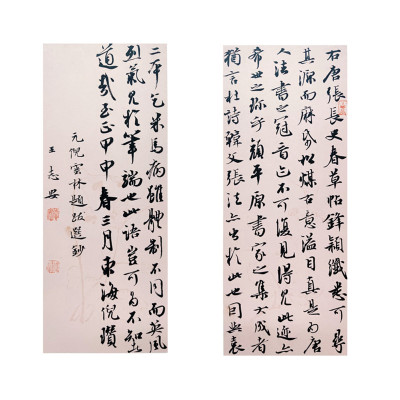 右唐張長史春草帖鋒穎纖悉可尋
其源而麻紙松煤古意溢目真足為唐
人法書之冠晉迹不可復見得見此迹亦
希世之珍乎顏平原書家之集大成者
猶言杜詩韓文張法亦出於此也因與袁
二本乞米馬病雖體制不同而英風
烈氣見於筆端也此語豈可為不知
道哉至正甲申春三月東海倪瓚
元倪雲林題跋選鈔
王志安